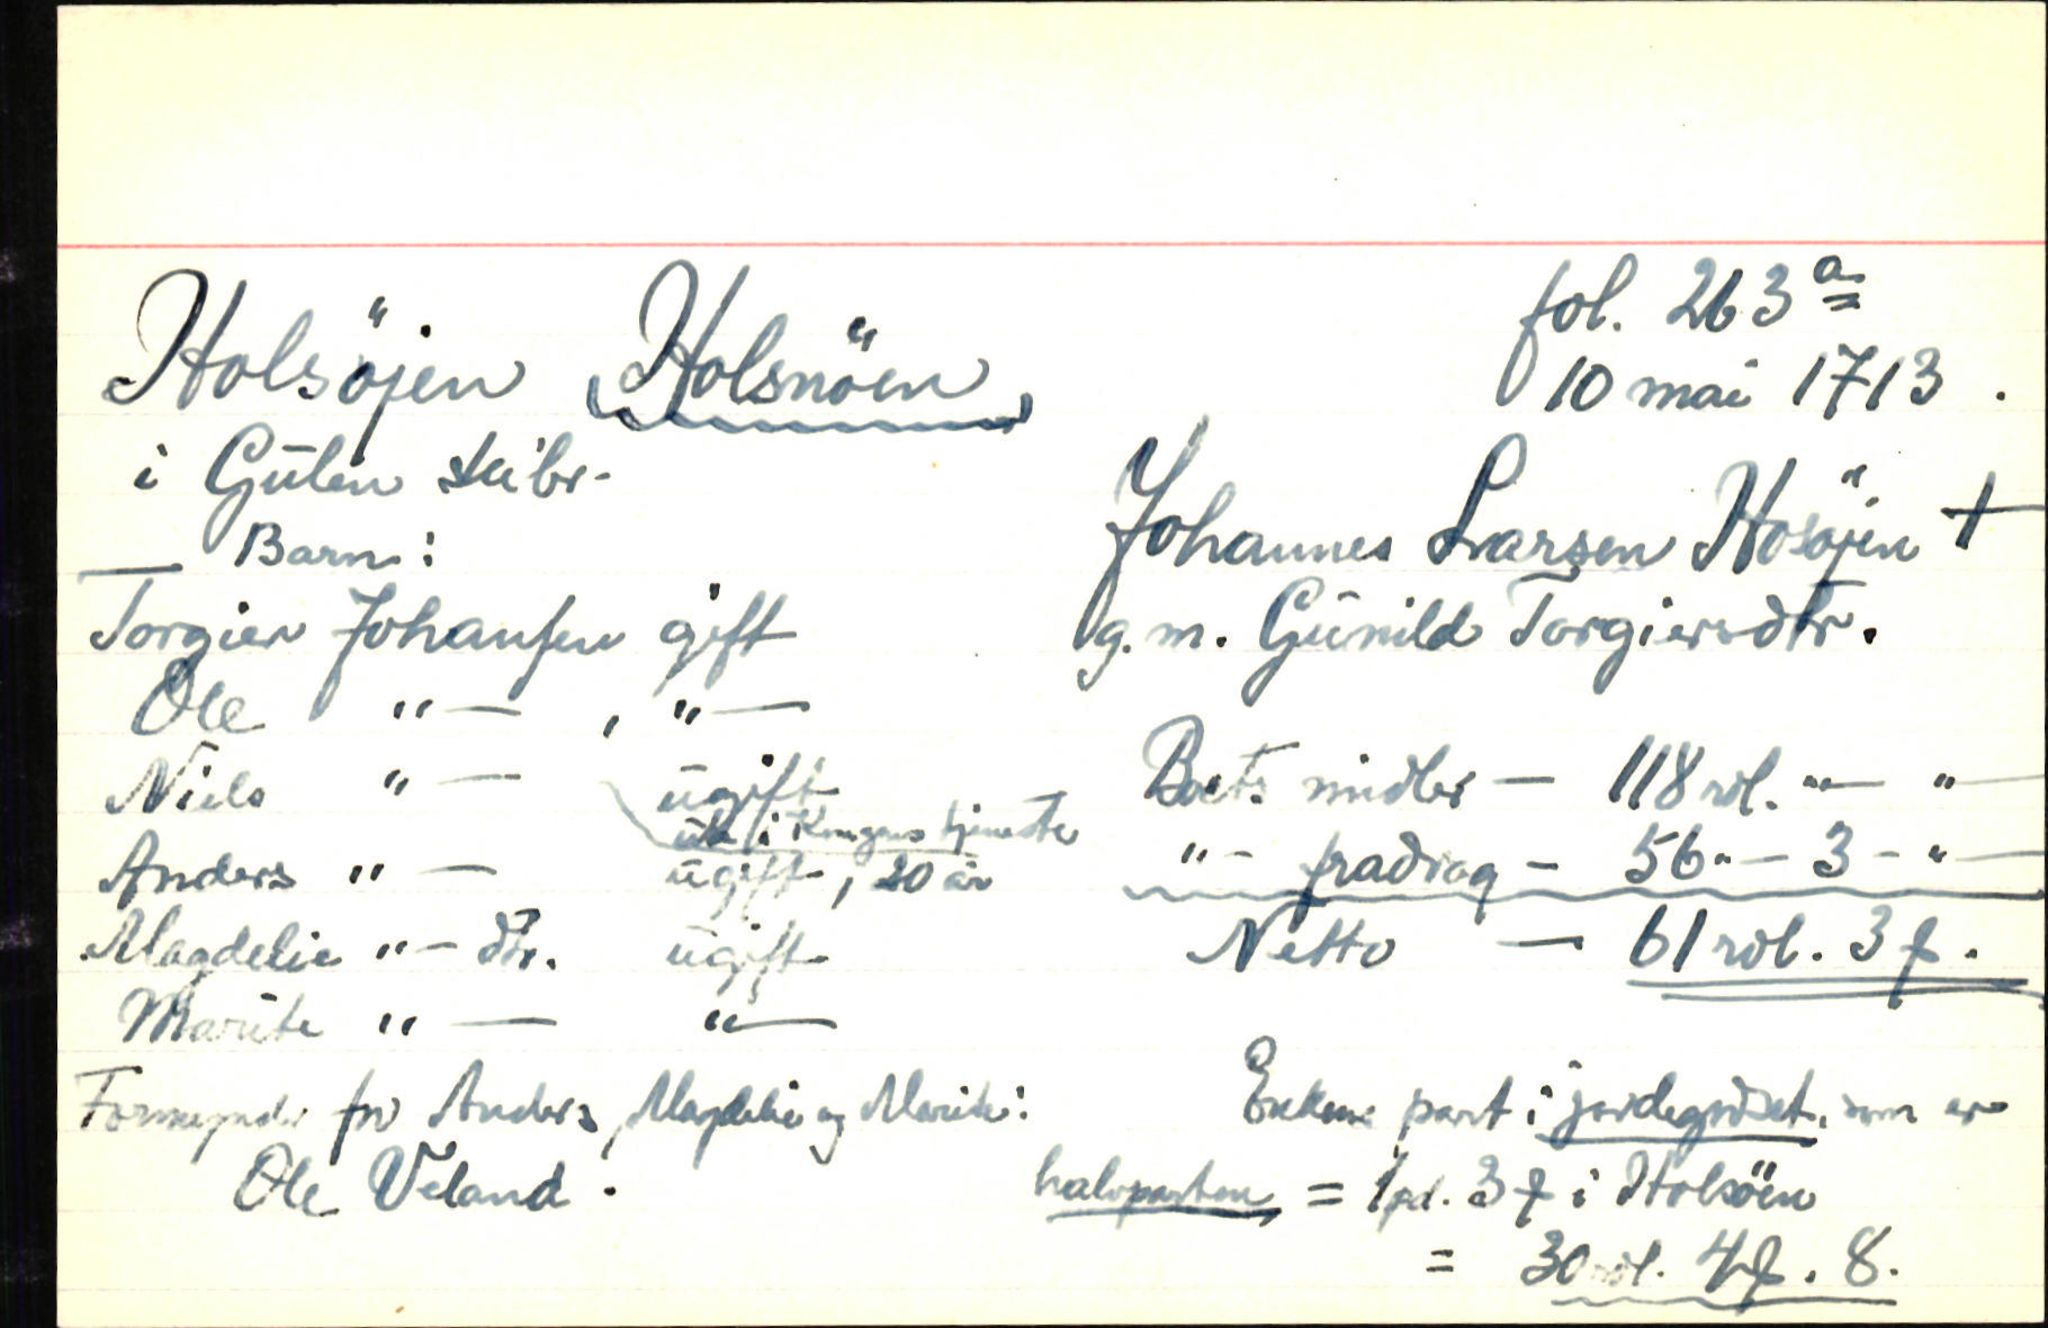 fol. 263 a
Holsöjen (Holsnöen)
10 mai 1713.
i Gulen skibr.
Johannes Larsen Hosöjen †
g. m. Gunild Torgiersdtr.
Barn:
Torgier Johansen gift
Ole "— , "—
Niels "— ugift
ute i Kongens tjeneste
Anders "— ugift, 20 år
Magdelie "— dtr. ugift
Marite "— "—
Formynder for Anders, Magdelie og Marite:
Ole Veland.
Boets midler — 118 rdl. "— "—
"— fradrag — 56 "— 3 — "—
Netto — 61 rdl. 3 ƒ.
Enkens part i jordegodset, som er
halvparten = 1 pd. 3 ƒ i Holsöen
= 30 rdl. 4 ƒ. 8.